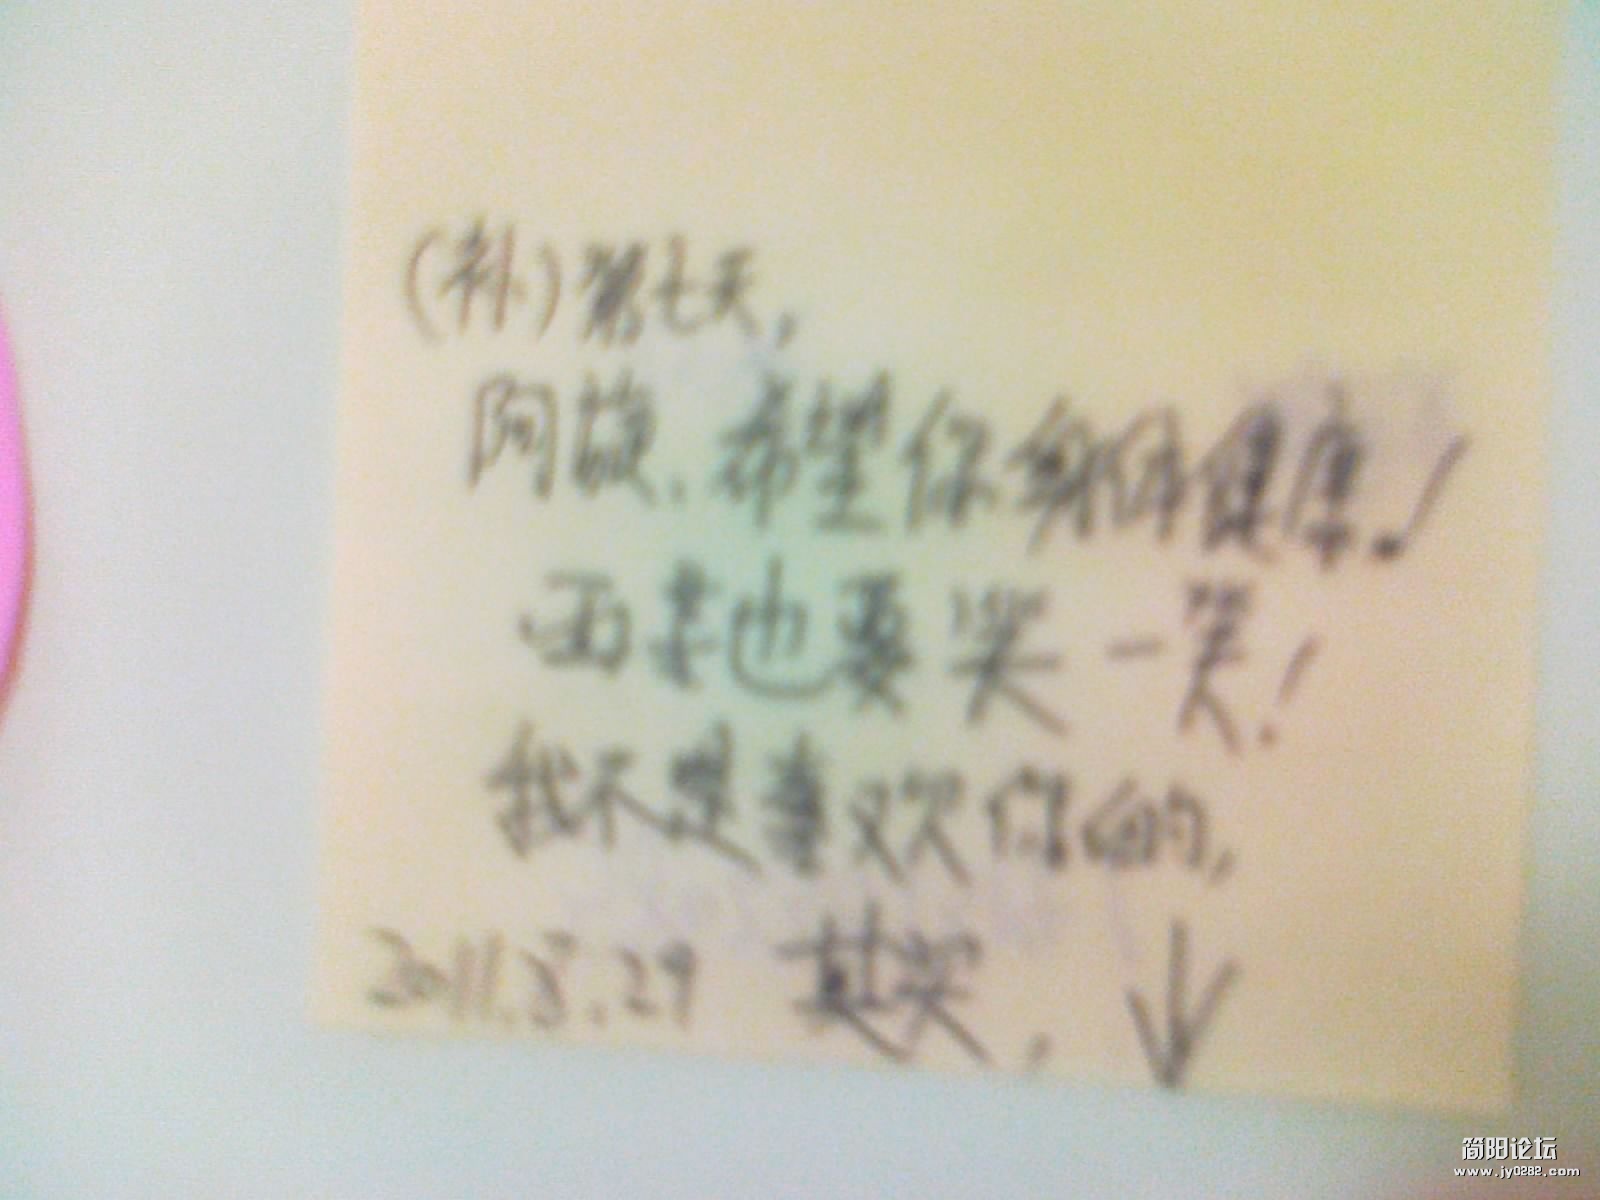 (补)第七天,
阿璇,希望你身体健康!
再幸也要笑一笑!
我不是喜欢你的,
2011.5.29 其实,
简阳论坛
www.jy0282.com